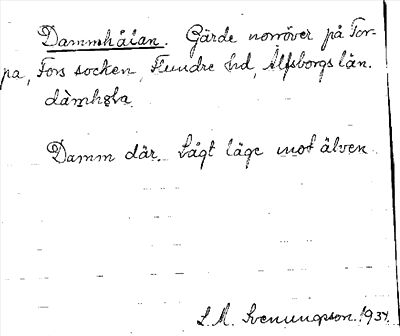 Dammhålan. Gärde norröver på Tor-
pa, Fors socken, Flundre hd, Älfsborgs län.
Damm där. Lågt läge mot älven
L. M. Svenungsson. 1934.